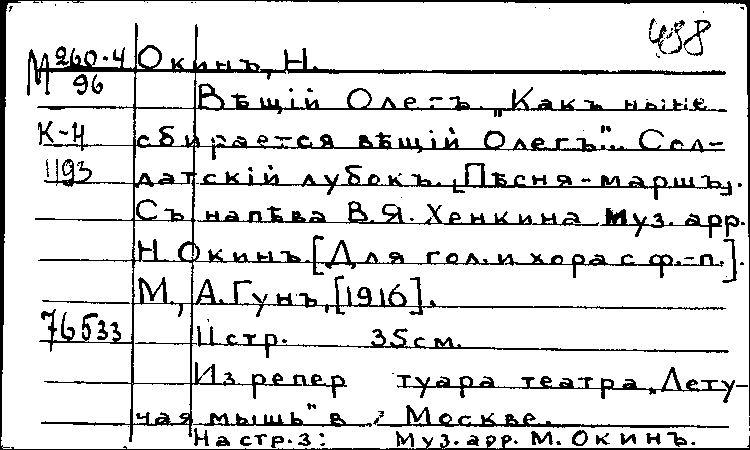 488
М 260-4 Окинъ, Н.
96
Вѣщій Олегъ. „Какъ нынѣ
К-4 сбирается вѣщій Олегъ"... Сол-
1193 датскій лубокъ. [Пѣсня-маршъ].
Съ напѣва В.Я. Хенкина Муз. арр.
Н. Окинъ. [Для гол. и хора с ф.-п.].
М., А. Гунъ, [1916].
76533 11 стр. 35 см.
Из репер туара театра „Лету-
чая мышь" в Москве.
На стр. 3: Муз. арр. М. Окинъ.